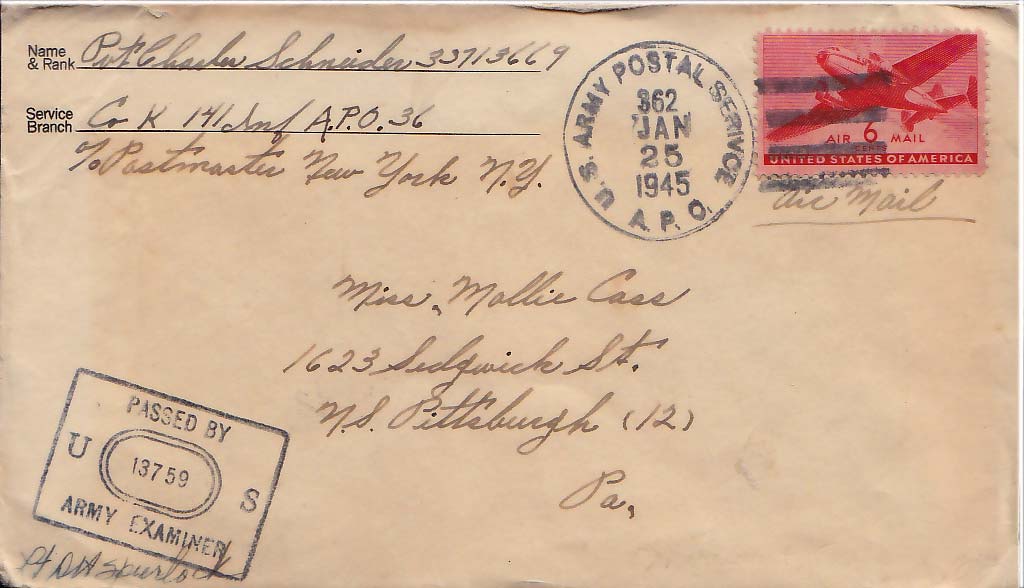 Name
& Rank Pvt Charles Schneider 33713669
Service
Branch Co K 141 Inf A.P.O. 36
c/o Postmaster New York N.Y.
U.S. ARMY POSTAL SERIVCE
362
JAN
25
1945
A.P.O.
AIR 6 MAIL
CENTS
UNITED STATES OF AMERICA
Air Mail
Miss. Mollie Cass
1623 Sedgwick St.
N.S. Pittsburgh (12)
Pa.
PASSED BY
U 13759 S
ARMY EXAMINER
Spurlock